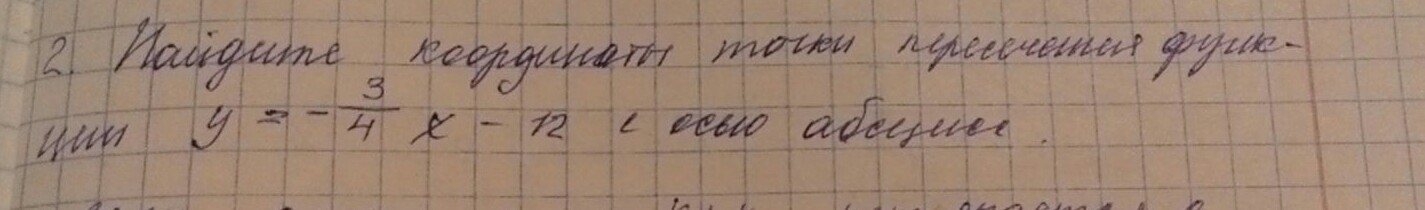 2. Найдите координаты точки пересечения функ-
ции y = -3/4 x - 12 с осью абсцисс.